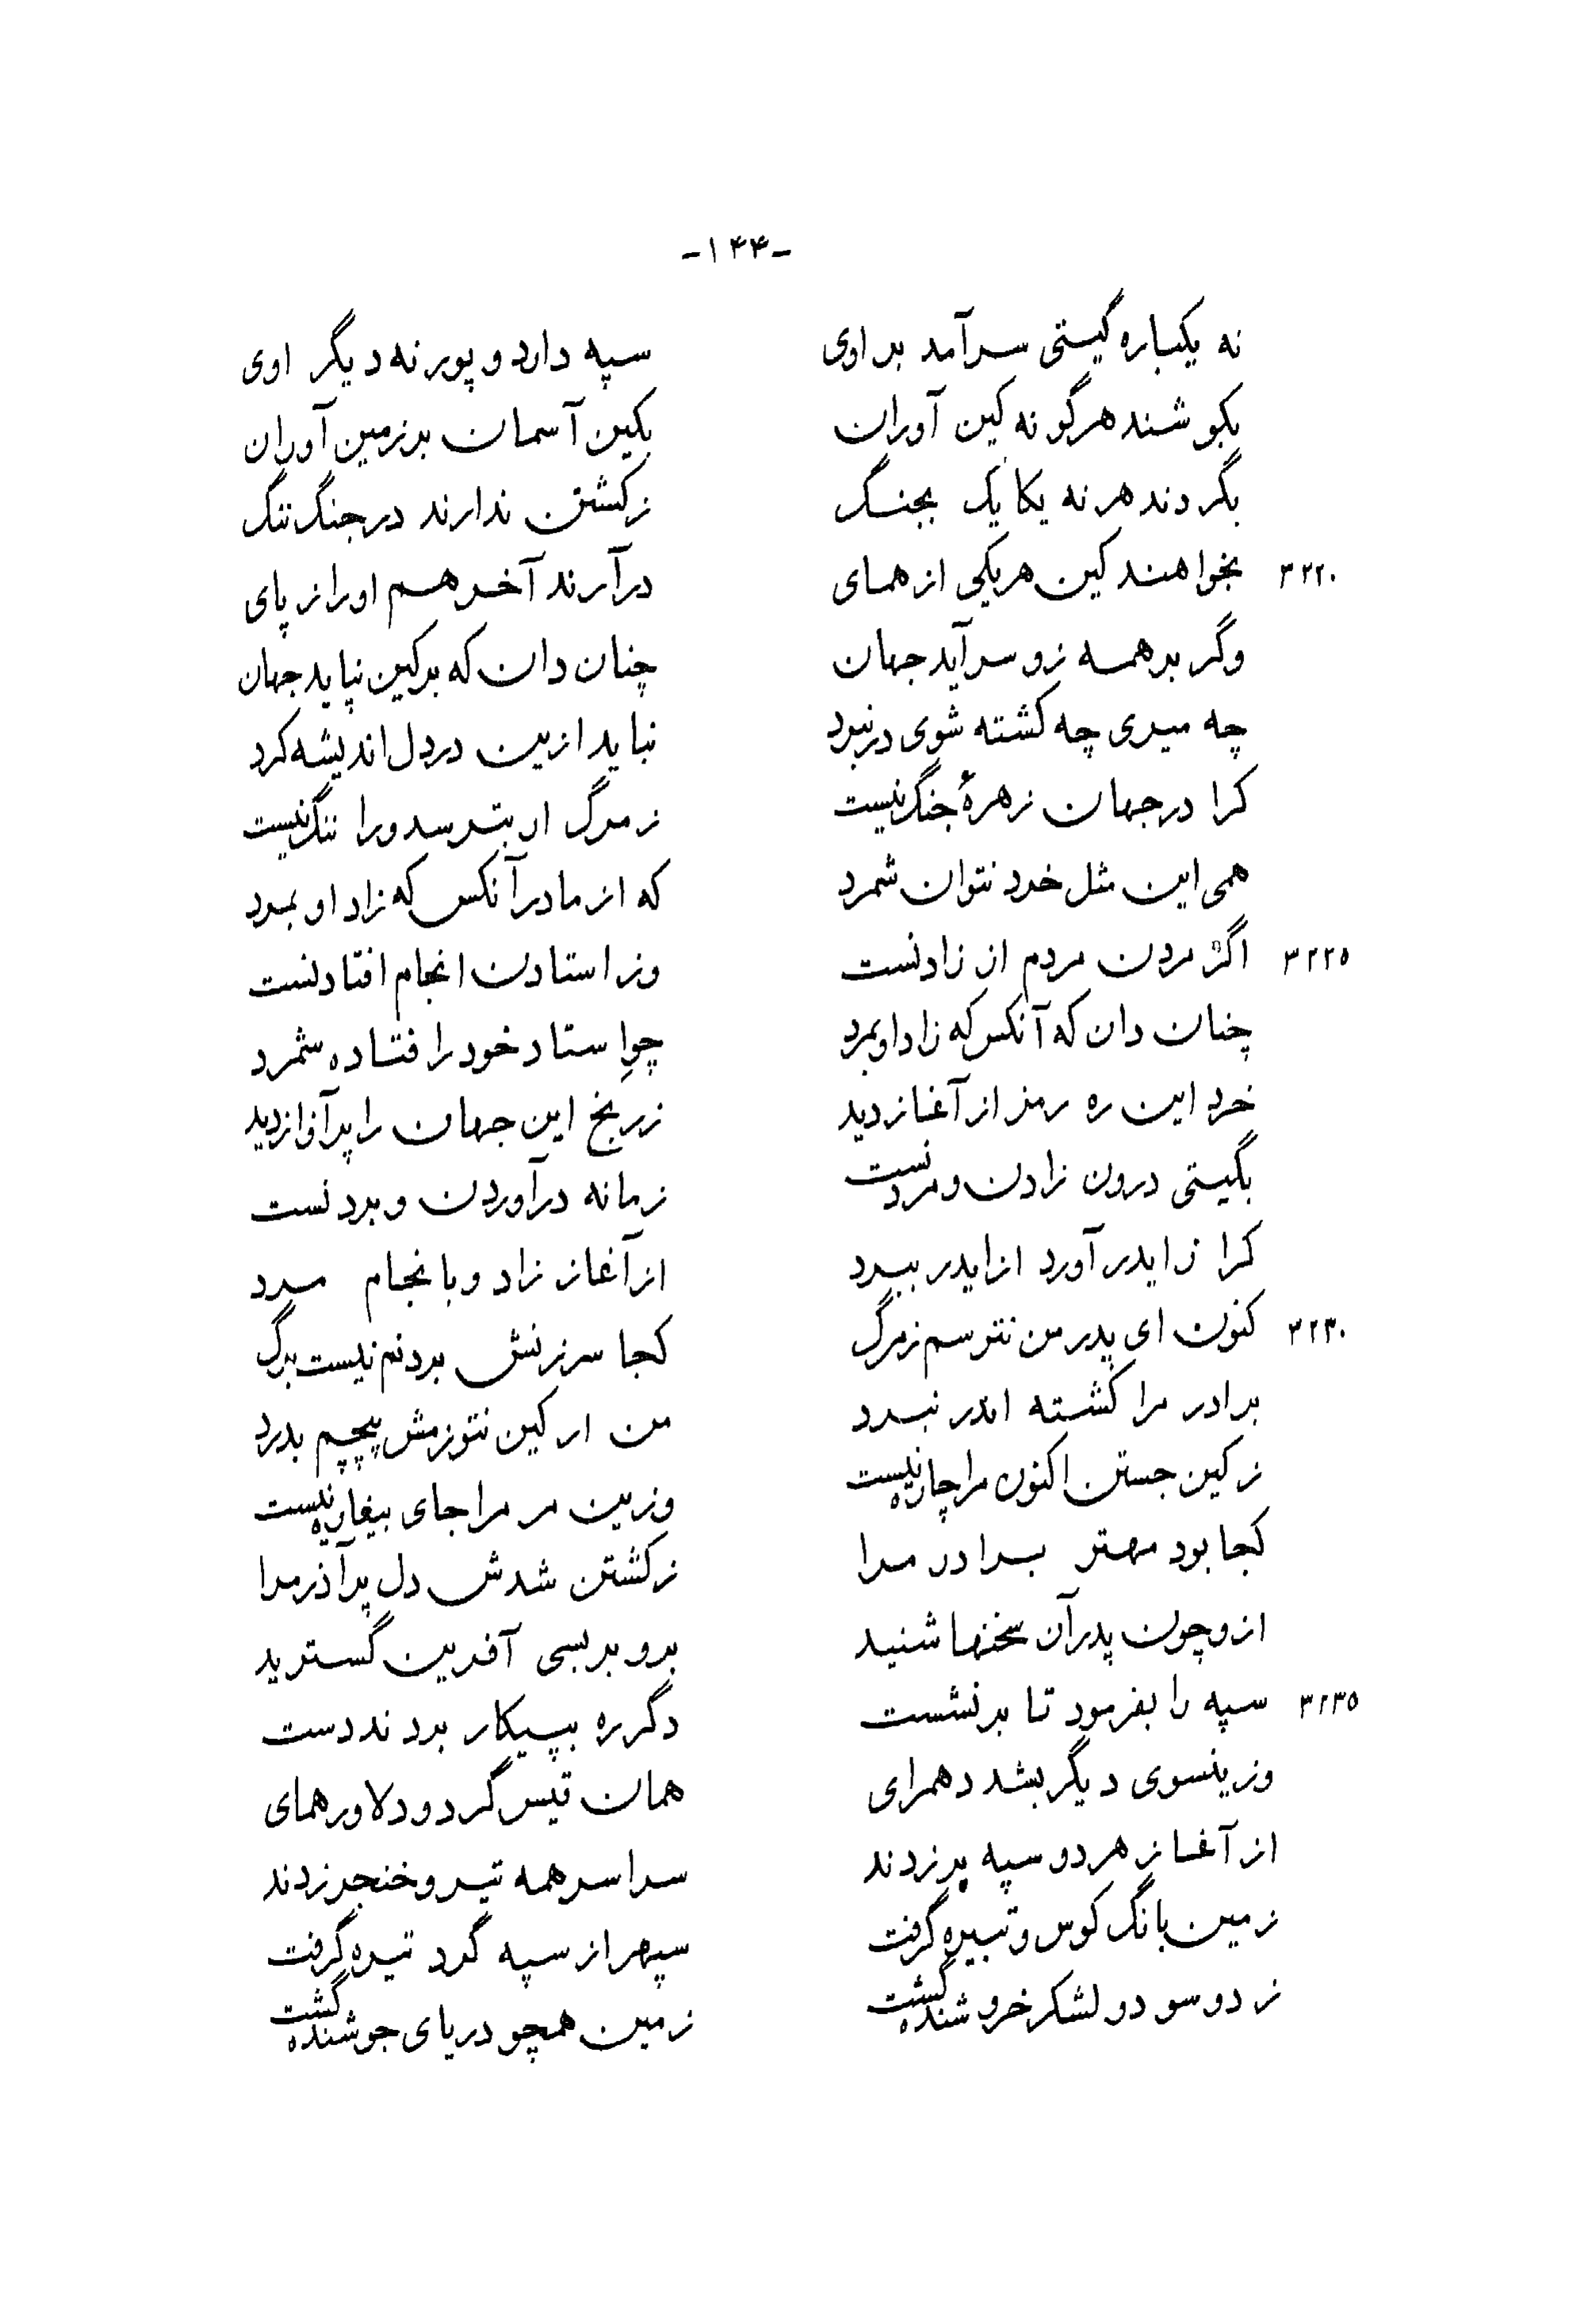 -۱۴۴-
نه یکباره گیتی سرآمد بر اوی سپه دارد و پور نه دیگر اوی
بکوشند هرگونه کین آوران بکین آسمان بر زمین آوران
بگردند هر نه یکایک بجنگ ز کشتن ندارند در جنگ ننگ
۳۲۲۰ بخواهند کین هر یکی از همای درآرند آخر هم او را ز پای
وگر بر همه زو سرآید جهان چنان دان که بر کین نپاید جهان
چه میری چه کشته شوی در نبرد نباید ازین در دل اندیشه کرد
کرا در جهان زهرهٔ جنگ نیست ز مرگ ار بترسد ورا ننگ نیست
همی این مثل خرد نتوان شمرد که از مادر آنکس که زاد او بمرد
۳۲۲۵ اگر مردن مردم از زادنست وز استادن انجام افتادنست
چنان دان که آنکس که زاد او بمرد چو استاد خود را فتاده شمرد
خرد این ره رمز از آغاز دید ز رنج این جهان را پر آواز دید
بگیتی درون زادن و مردنست زمانه در آوردن و بردنست
کرا زایدر آورد از ایدر ببرد از آغاز زاد و بانجام مرد
۳۲۳۰ کنون ای پدر من نترسم ز مرگ کجا سرزنش بردنم نیست برگ
برادر مرا کشته اندر نبرد من ار کین نتوزمش پیچم بدرد
ز کین جستن اکنون مرا چاره نیست وزین مر مرا جای بیغاره نیست
کجا بود مهتر برادر مرا ز کشتن شدش دل پر آذر مرا
ازو چون پدر آن سخنها شنید برو بر بسی آفرین گسترید
۳۲۳۵ سپه را بفرمود تا بر نشست دگر ره بپیکار بردند دست
وزینسوی دیگر بشد دهمرای همان قیس گرد و دلاور همای
از آغاز هر دو سپه بر زدند سراسر همه تیر و خنجر زدند
زمین بانگ کوس و تبیره گرفت سپهر از سپه گرد تیره گرفت
ز دو سو دو لشکر خروشنده گشت زمین همچو دریای جوشنده گشت